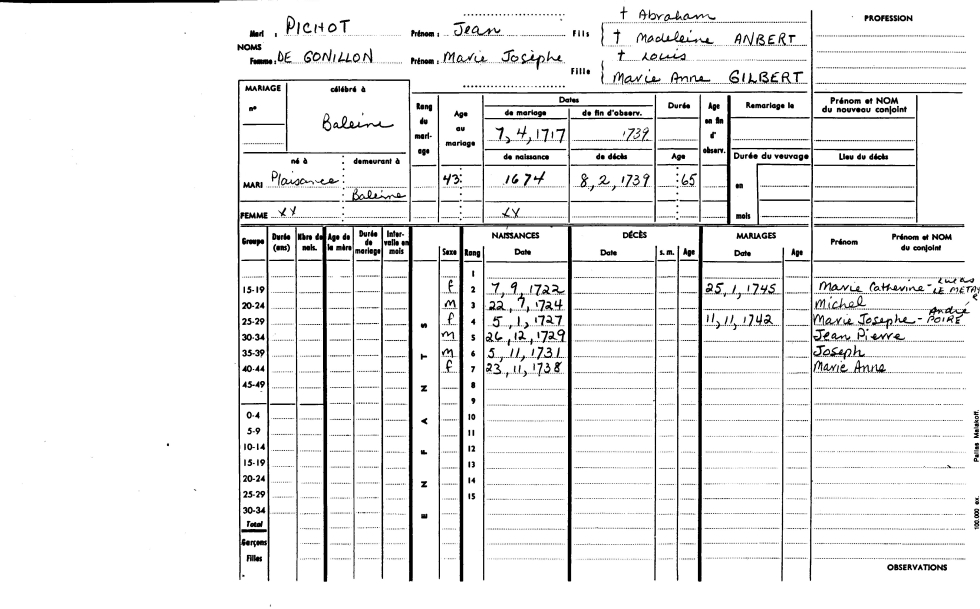 † Abraham PROFESSION
Mari : PICHOT Prénom : Jean Fils † Madeleine ANBERT
NOMS † Louis
Femme : DE GONILLON Prénom : Marie Josèphe Fille Marie Anne GILBERT
MARIAGE célébré à Rang du mari- age Age au mariage Dates Durée Age en fin d' observ. Remariage le Prénom et NOM du nouveau conjoint
nº Baleine de mariage de fin d'observ.
7, 4, 1717 1739
né à demeurant à de naissance de décès Age Durée du veuvage Lieu du décès
MARI Plaisance Baleine 43 1674 8, 2, 1739 65 en
FEMME XX XX mois
Groupe Durée (ans) Nbre de nais. Age de la mère Durée de mariage Inter- valle en mois Sexe Rang NAISSANCES Date DÉCÈS Date s. m. Age MARIAGES Date Age Prénom Prénom et NOM du conjoint
1
15-19 f 2 7, 9, 1722 25, 1, 1745 Marie Catherine -
20-24 m 3 22, 7, 1724 Michel
25-29 f 4 5, 1, 1727 11, 11, 1742 Marie Josephe - André POIRÉ
30-34 m 5 26, 12, 1729 Jean Pierre
35-39 m 6 5, 11, 1731 Joseph
40-44 f 7 23, 11, 1738 Marie Anne
45-49 8
9
0-4 10
5-9 11
10-14 12
15-19 13
20-24 14
25-29 15
30-34
Total
Garçons
Filles
E N F A N T S
OBSERVATIONS
100.000 ex. Pallas Malakoff.